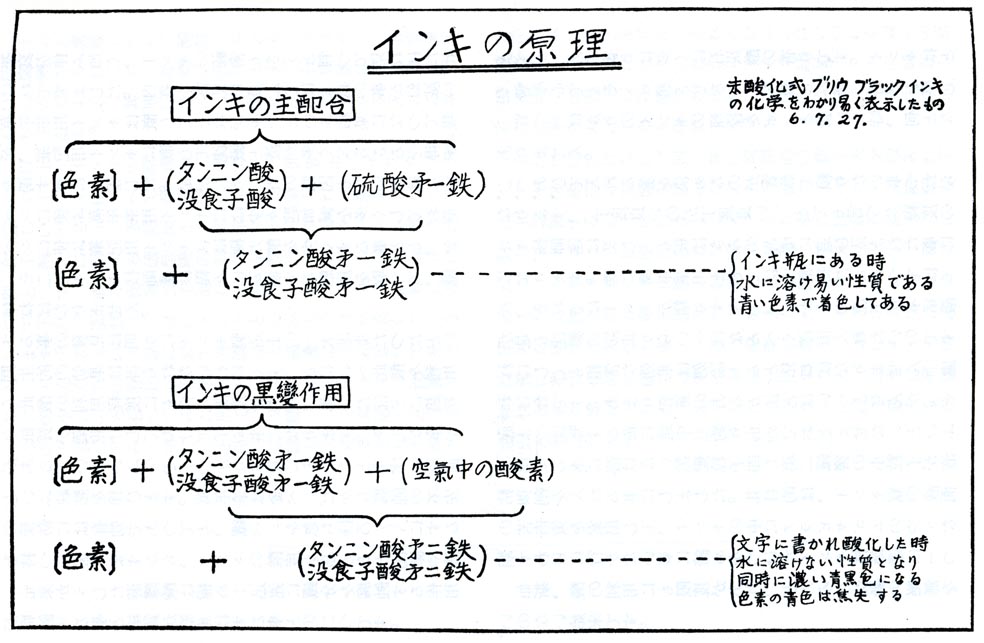 インキの原理
未酸化式 ブリウブラックインキ
の化学をわかり易く表示したもの
6. 7. 27.
インキの主配合
[色素] + (タンニン酸
没食子酸) + (硫酸㐧一鉄)
[色素] + (タンニン酸㐧一鉄
没食子酸㐧一鉄)
インキ瓶にある時
水に溶け易い性質である
青い色素で着色してある
インキの黒變作用
[色素] + (タンニン酸㐧一鉄
没食子酸㐧一鉄) + (空氣中の酸素)
[色素] + (タンニン酸㐧二鉄
没食子酸㐧二鉄)
文字に書かれ酸化した時
水に溶けない性質となり
同時に濃い青黒色になる
色素の青色は失する